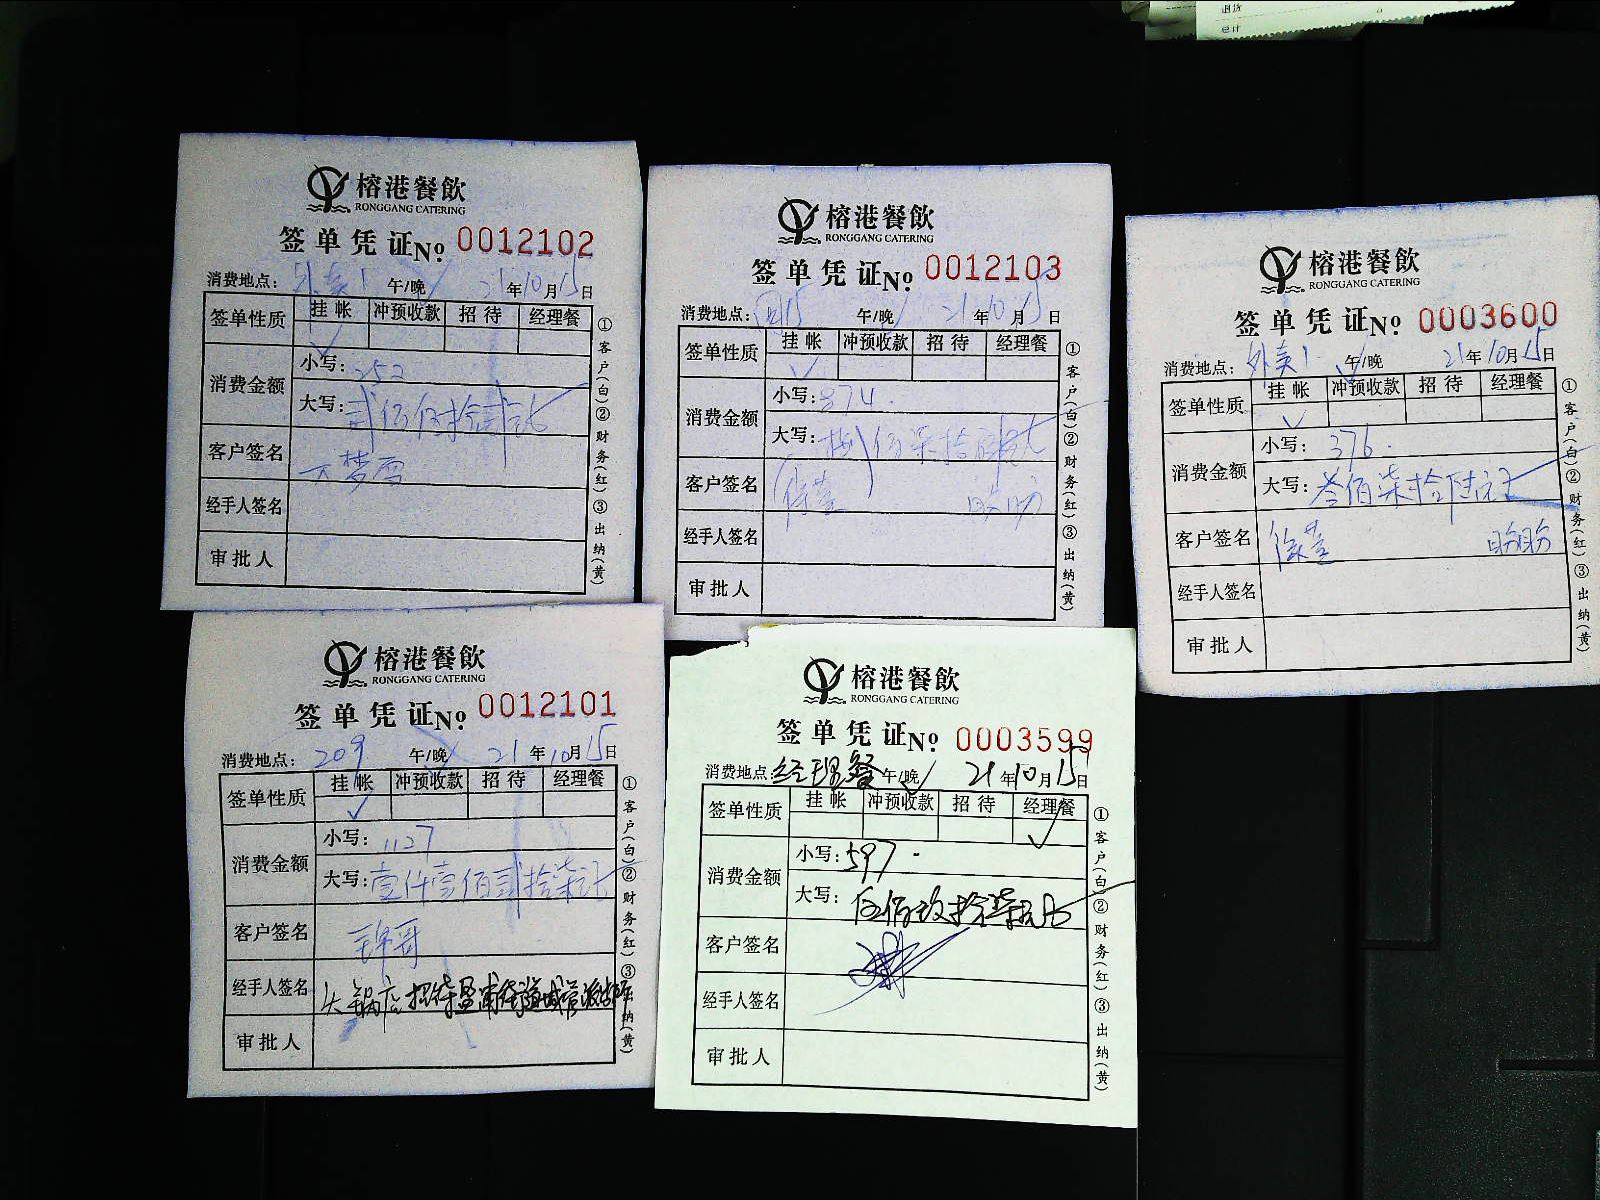 退货
总计
榕港餐飲
RONGGANG CATERING
签单凭证 No: 0012102
消费地点: 外卖1 午/晚 21年10月15日
签单性质 挂帐 冲预收款 招待 经理餐
消费金额 小写: 252
大写: 贰佰伍拾贰元
客户签名 梦雪
经手人签名
审批人
①客户(白)②财务(红)③出纳(黄)
榕港餐飲
RONGGANG CATERING
签单凭证 No: 0012103
消费地点: 午/晚 21年10月15日
签单性质 挂帐 冲预收款 招待 经理餐
消费金额 小写: 874.
大写: 捌佰柒拾肆元
客户签名
经手人签名
审批人
①客户(白)②财务(红)③出纳(黄)
榕港餐飲
RONGGANG CATERING
签单凭证 No: 0003600
消费地点: 外卖1 午/晚 21年10月15日
签单性质 挂帐 冲预收款 招待 经理餐
消费金额 小写: 376.
大写: 叁佰柒拾陆元正
客户签名 盼盼
经手人签名
审批人
①客户(白)②财务(红)③出纳(黄)
榕港餐飲
RONGGANG CATERING
签单凭证 No: 0012101
消费地点: 209 午/晚 21年10月15日
签单性质 挂帐 冲预收款 招待 经理餐
消费金额 小写: 1127
大写: 壹仟壹佰贰拾柒元
客户签名
经手人签名 大锅店招待 街道城管派出所
审批人
①客户(白)②财务(红)③出纳(黄)
榕港餐飲
RONGGANG CATERING
签单凭证 No: 0003599
消费地点: 经理餐 午/晚 21年10月15日
签单性质 挂帐 冲预收款 招待 经理餐
消费金额 小写: 597.
大写: 伍佰玖拾柒元正
客户签名
经手人签名
审批人
①客户(白)②财务(红)③出纳(黄)